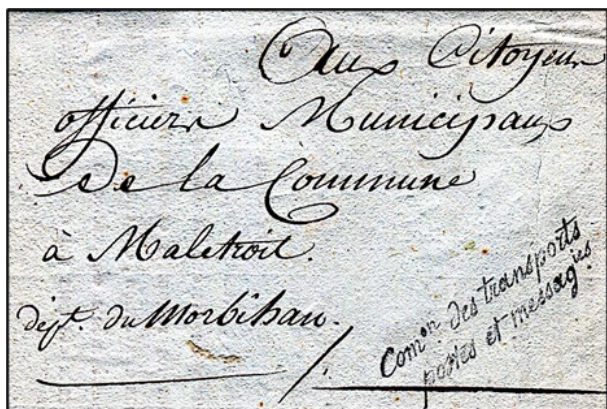 Aux Citoyens
officiers Municipaux
De la Commune
à Maletroit.
dépt. du Morbihan.
Com^on des transports
postes et messag^ies